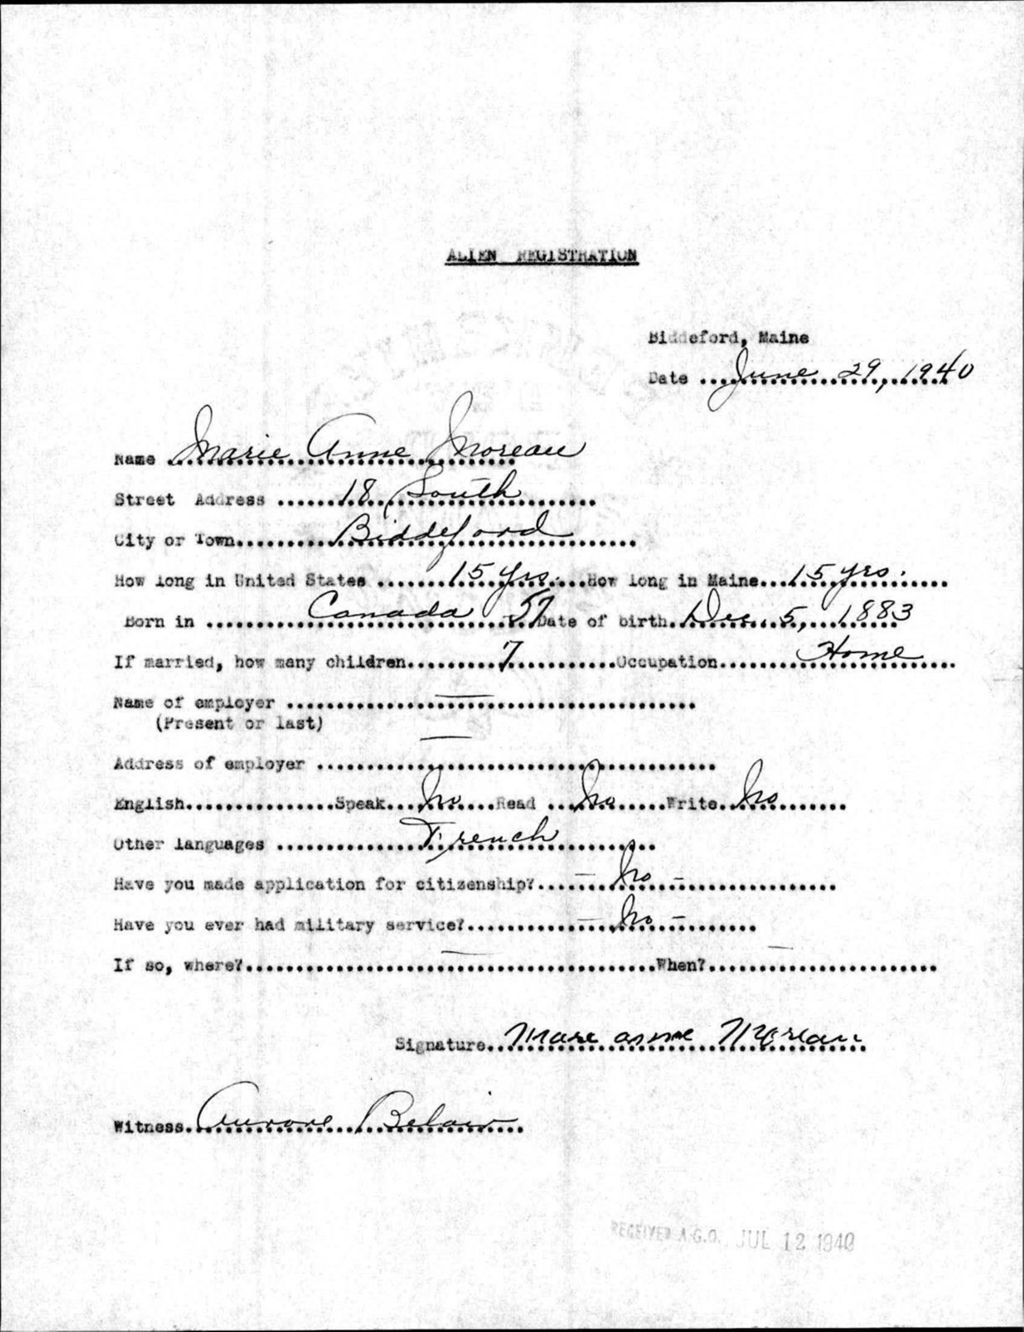 ALIEN REGISTRATION
Biddeford, Maine
Date ... June 29, 1940
Name ... Marie Anne Moreau
Street Address ... 18 South
City or Town ... Biddeford
How long in United States ... 15 yrs. ... How long in Maine ... 15 yrs.
Born in ... Canada 57 Date of birth ... Dec. 5, 1883
If married, how many children ... 7 ... Occupation ... Home
Name of employer ... —
(Present or last)
Address of employer ... —
English ... Speak ... No ... Read ... No ... Write ... No
Other languages ... French
Have you made application for citizenship? ... - No -
Have you ever had military service? ... - No -
If so, where? ... — ... When? ... —
Signature ... Mare anne Moreau
Witness ... Aurore Belair
RECEIVED A.G.O. JUL 12 1940